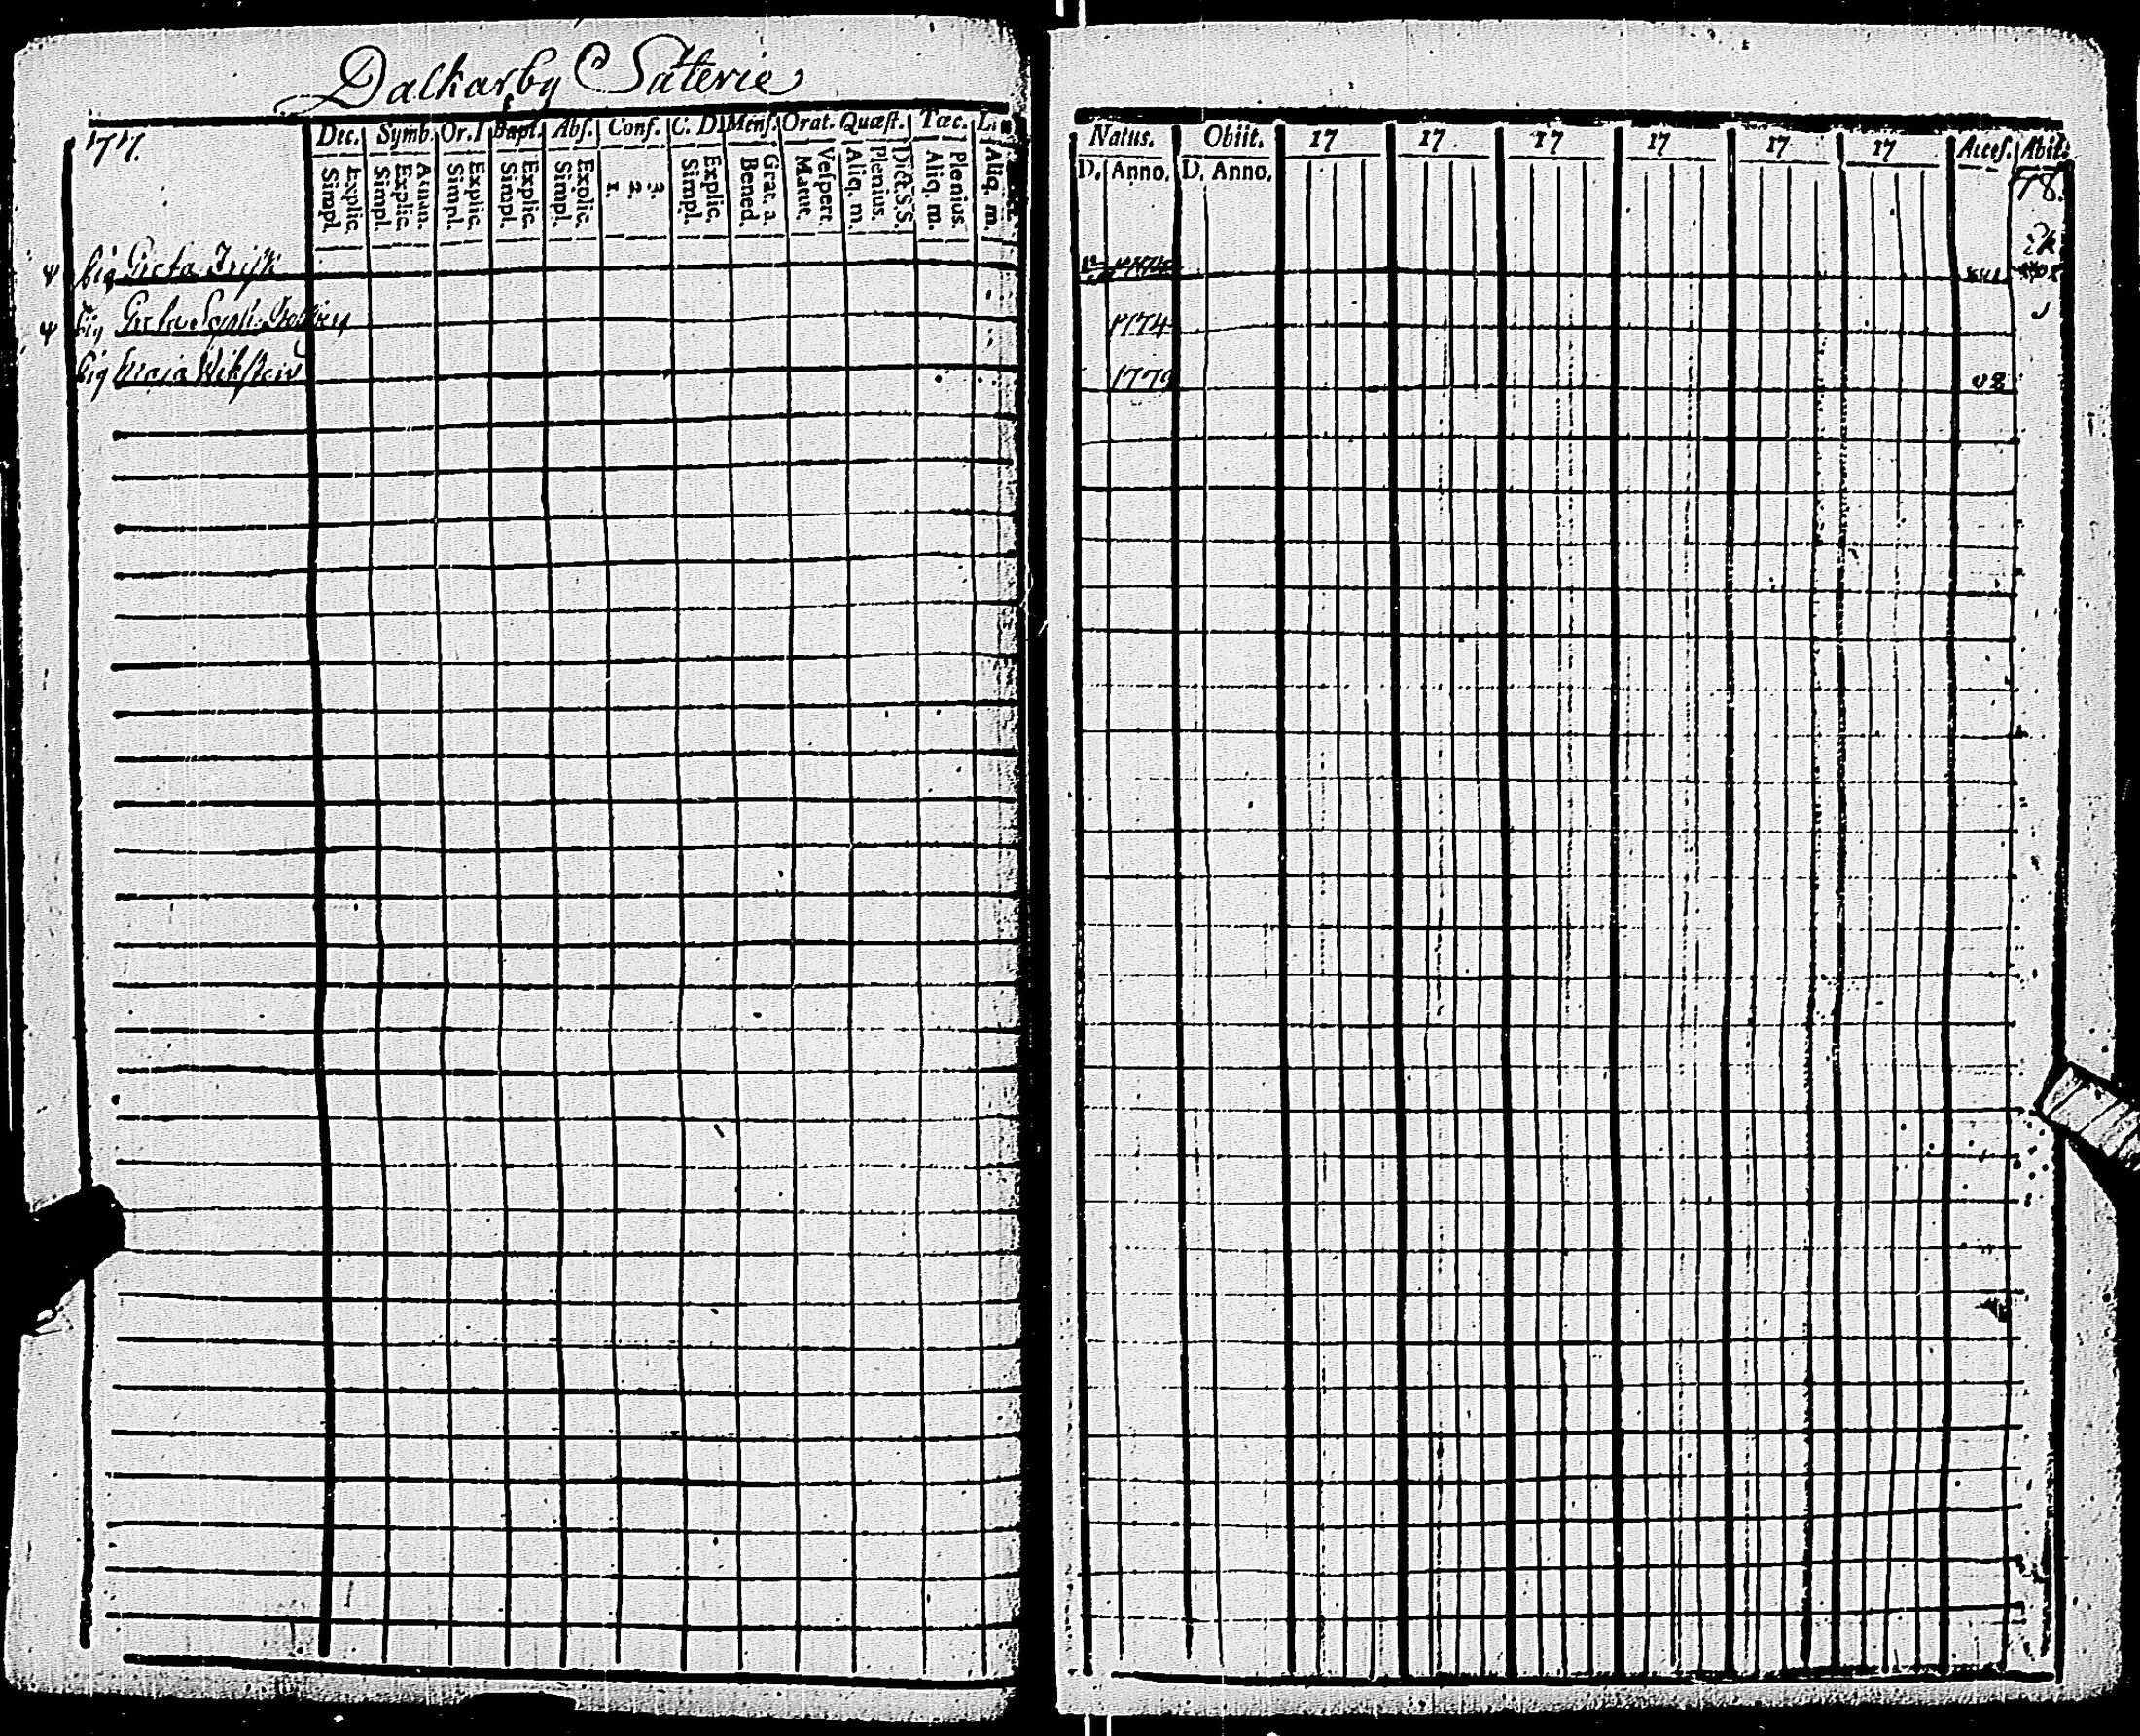 Dalkarby Säterie
1717.
Dec. Symb. Or. D Bapt. Abs. Conf. C. D. Mens. Orat. Quæst. Tœc. L.
Explic. Simpl. Athan. Explic. Simpl. Explic. Simpl. Explic. Simpl. Explic. Simpl. 3. 2. 1. Explic. Simpl. Grat. a. Bened. Vespert. Matut. Dict. S. S. Plenius. Aliq. m. Plenius. Aliq. m. Aliq. m.
Pig Greta Frisk
Pig Greta
Pig Maja Wikström
Natus. Obiit. 17 17 17 17 17 17 Acces. Abit.
D. Anno. D. Anno.
78.
1774
1779 02